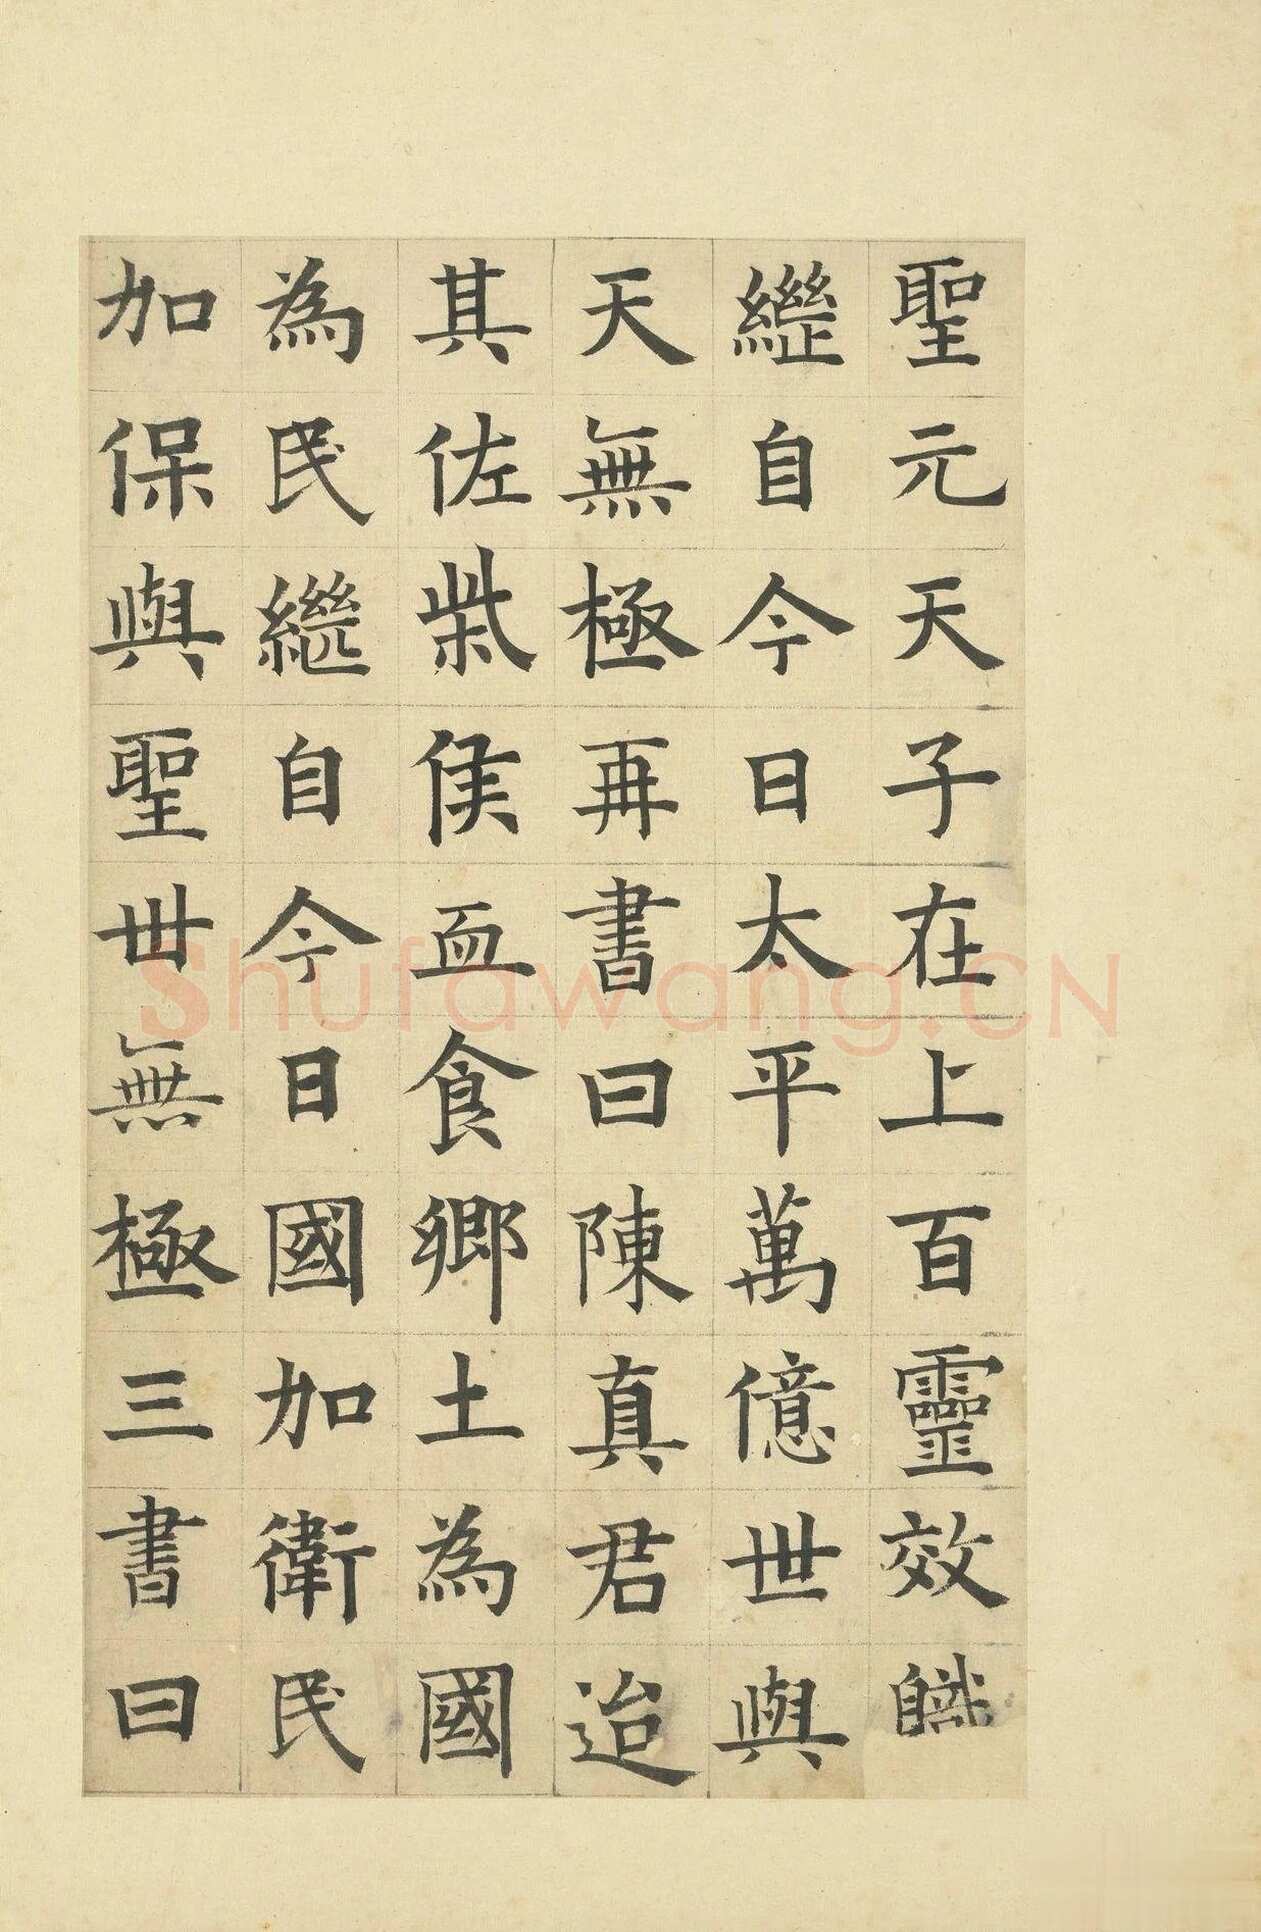 聖元天子在上百靈效職
繼自今日太平萬億世與
天無極再書曰陳真君迨
其佐柴侯血食鄉土為國
為民繼自今日國加衛民
加保與聖世無極三書曰
Shufawang.CN